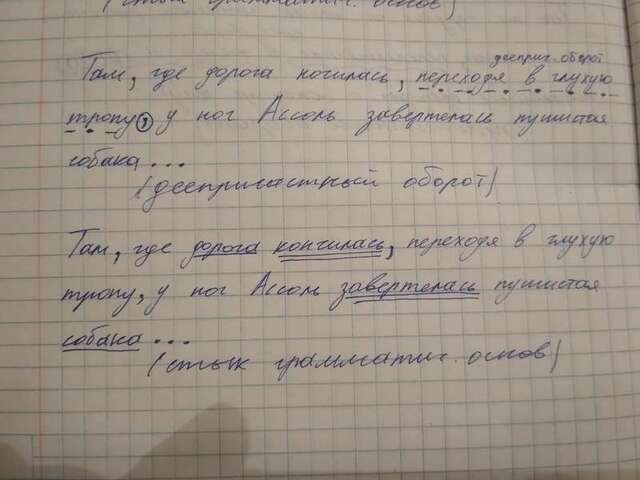 (стык грамматич. основ)
дееприч. оборот
Там, где дорога кончилась, переходя в глухую
тропу, у ног Ассоль завертелась пушистая
собака...
(деепричастный оборот)
Там, где дорога кончилась, переходя в глухую
тропу, у ног Ассоль завертелась пушистая
собака...
(стык грамматич. основ)